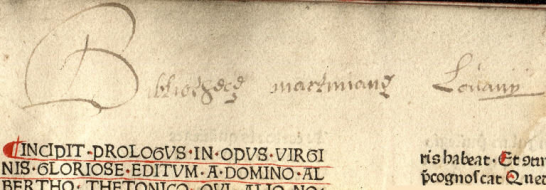 Bibliothecę martinianę Lovanij
INCIPIT·PROLOGVS·IN·OPVS·VIRGI
NIS·GLORIOSE·EDITVM·A·DOMINO·AL
BERTHO·THETONICO·QVI·ALIO·NO·
ris habeat·Et
p̄cognoscat